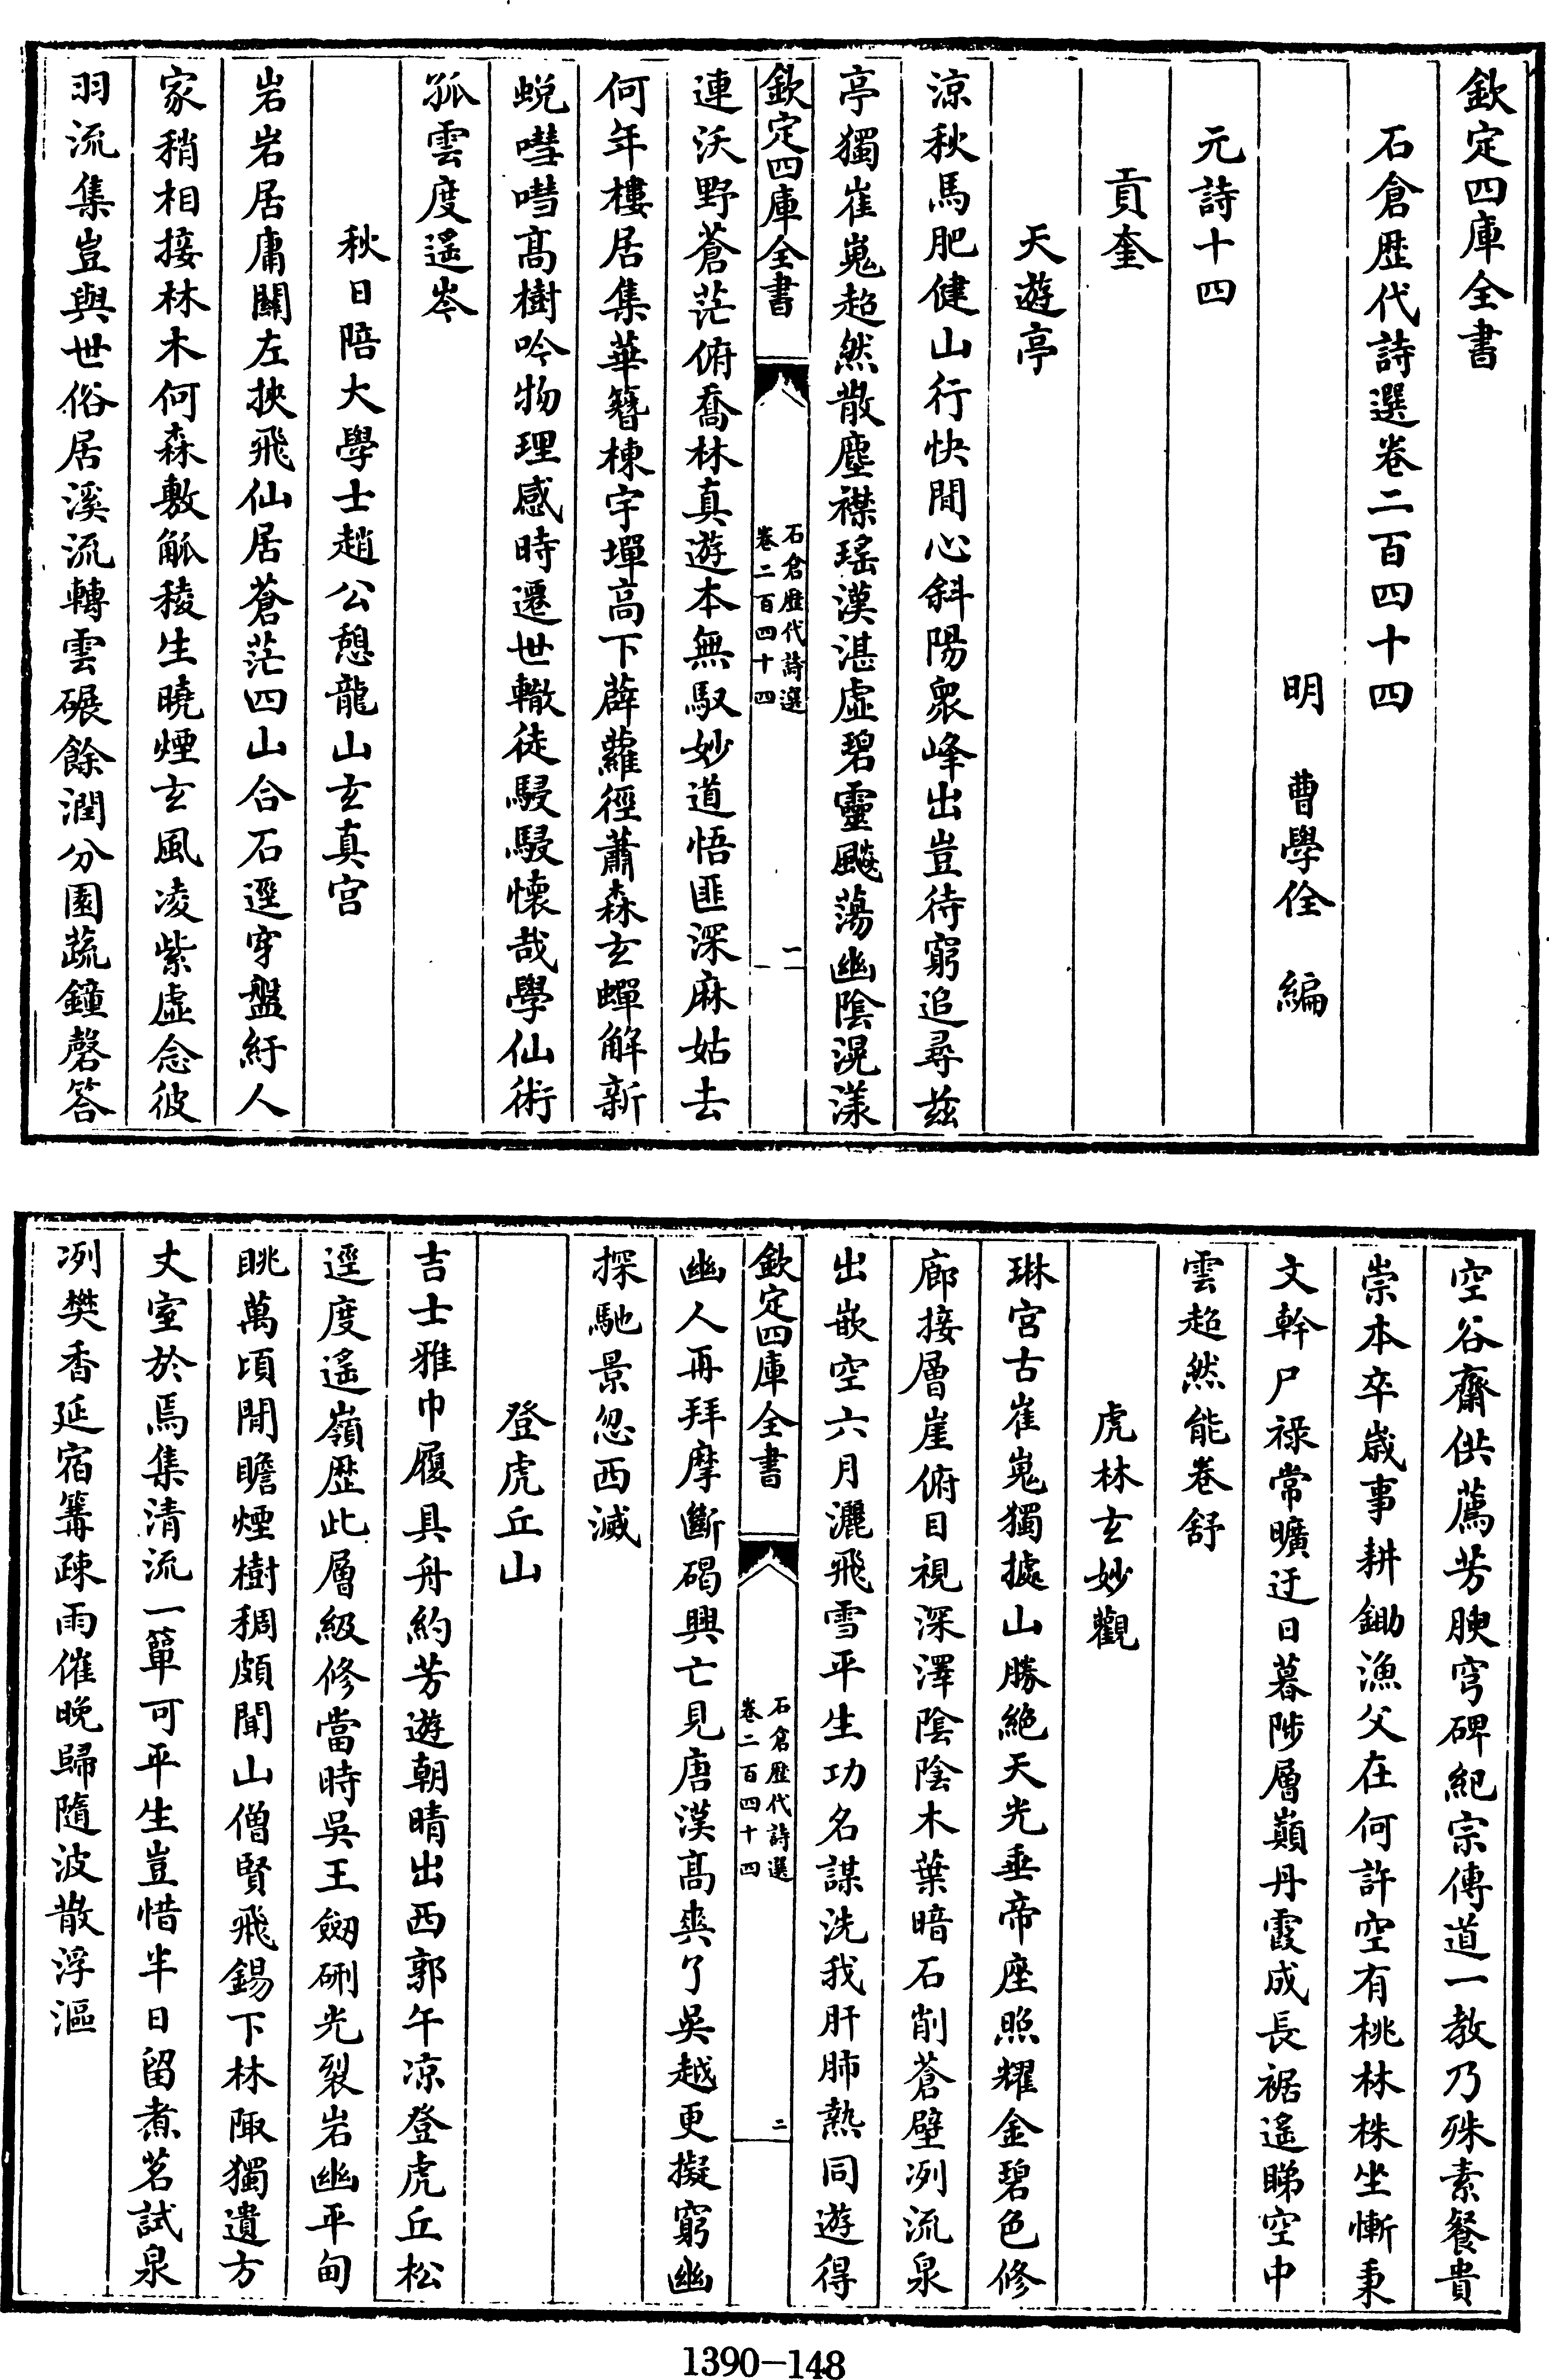 欽定四庫全書
石倉歴代詩選卷二百四十四
明 曹學佺 編
元詩十四
貢奎
天遊亭
涼秋馬肥健山行快閒心斜陽衆峰出豈待窮追尋兹
亭獨崔嵬超然散塵襟瑤漢湛虛碧靈飈蕩幽陰滉漾
欽定四庫全書
石倉歴代詩選
卷二百四十四
一
連沃野蒼茫俯喬林真遊本無馭妙道悟匪深麻姑去
何年樓居集華簪棟宇墠高下薜蘿徑蕭森玄蟬解新
蛻嘒嘒髙樹吟物理感時遷世轍徒駸駸懐哉學仙術
孤雲度遥岑
秋日陪大學士趙公憩龍山玄真宫
岩岩居庸關左挾飛仙居蒼茫四山合石逕穿盤紆人
家稍相接林木何森敷觚稜生曉煙玄風凌紫虛念彼
羽流集豈與世俗居溪流轉雲碾餘潤分園蔬鐘磬答
空谷齋供薦芳腴穹碑紀宗傳道一教乃殊素餐貴
崇本卒歲事耕鋤漁父在何許空有桃林株坐慚秉
文幹尸禄常曠迂日暮陟層巔丹霞成長裾遥睇空中
雲超然能卷舒
虎林玄妙觀
琳宫古崔嵬獨據山勝絶天光垂帝座照耀金碧色修
廊接層崖俯目視深澤陰陰木葉暗石削蒼壁冽流泉
出嵌空六月灑飛雪平生功名謀洗我肝肺熱同遊得
欽定四庫全書
石倉歴代詩選
卷二百四十四
二
幽人再拜摩斷碣興亡見唐漢髙爽了吳越更擬窮幽
探馳景忽西滅
登虎丘山
吉士雅巾履具舟約芳遊朝晴出西郭午凉登虎丘松
逕度遥嶺歴此層級修當時吳王劒硎光裂岩幽平甸
眺萬頃閒瞻煙樹稠頗聞山僧賢飛錫下林陬獨遺方
丈室於焉集清流一簞可平生豈惜半日留煮茗試泉
冽樊香延宿篝疎雨催晚歸隨波散浮漚
1390-148